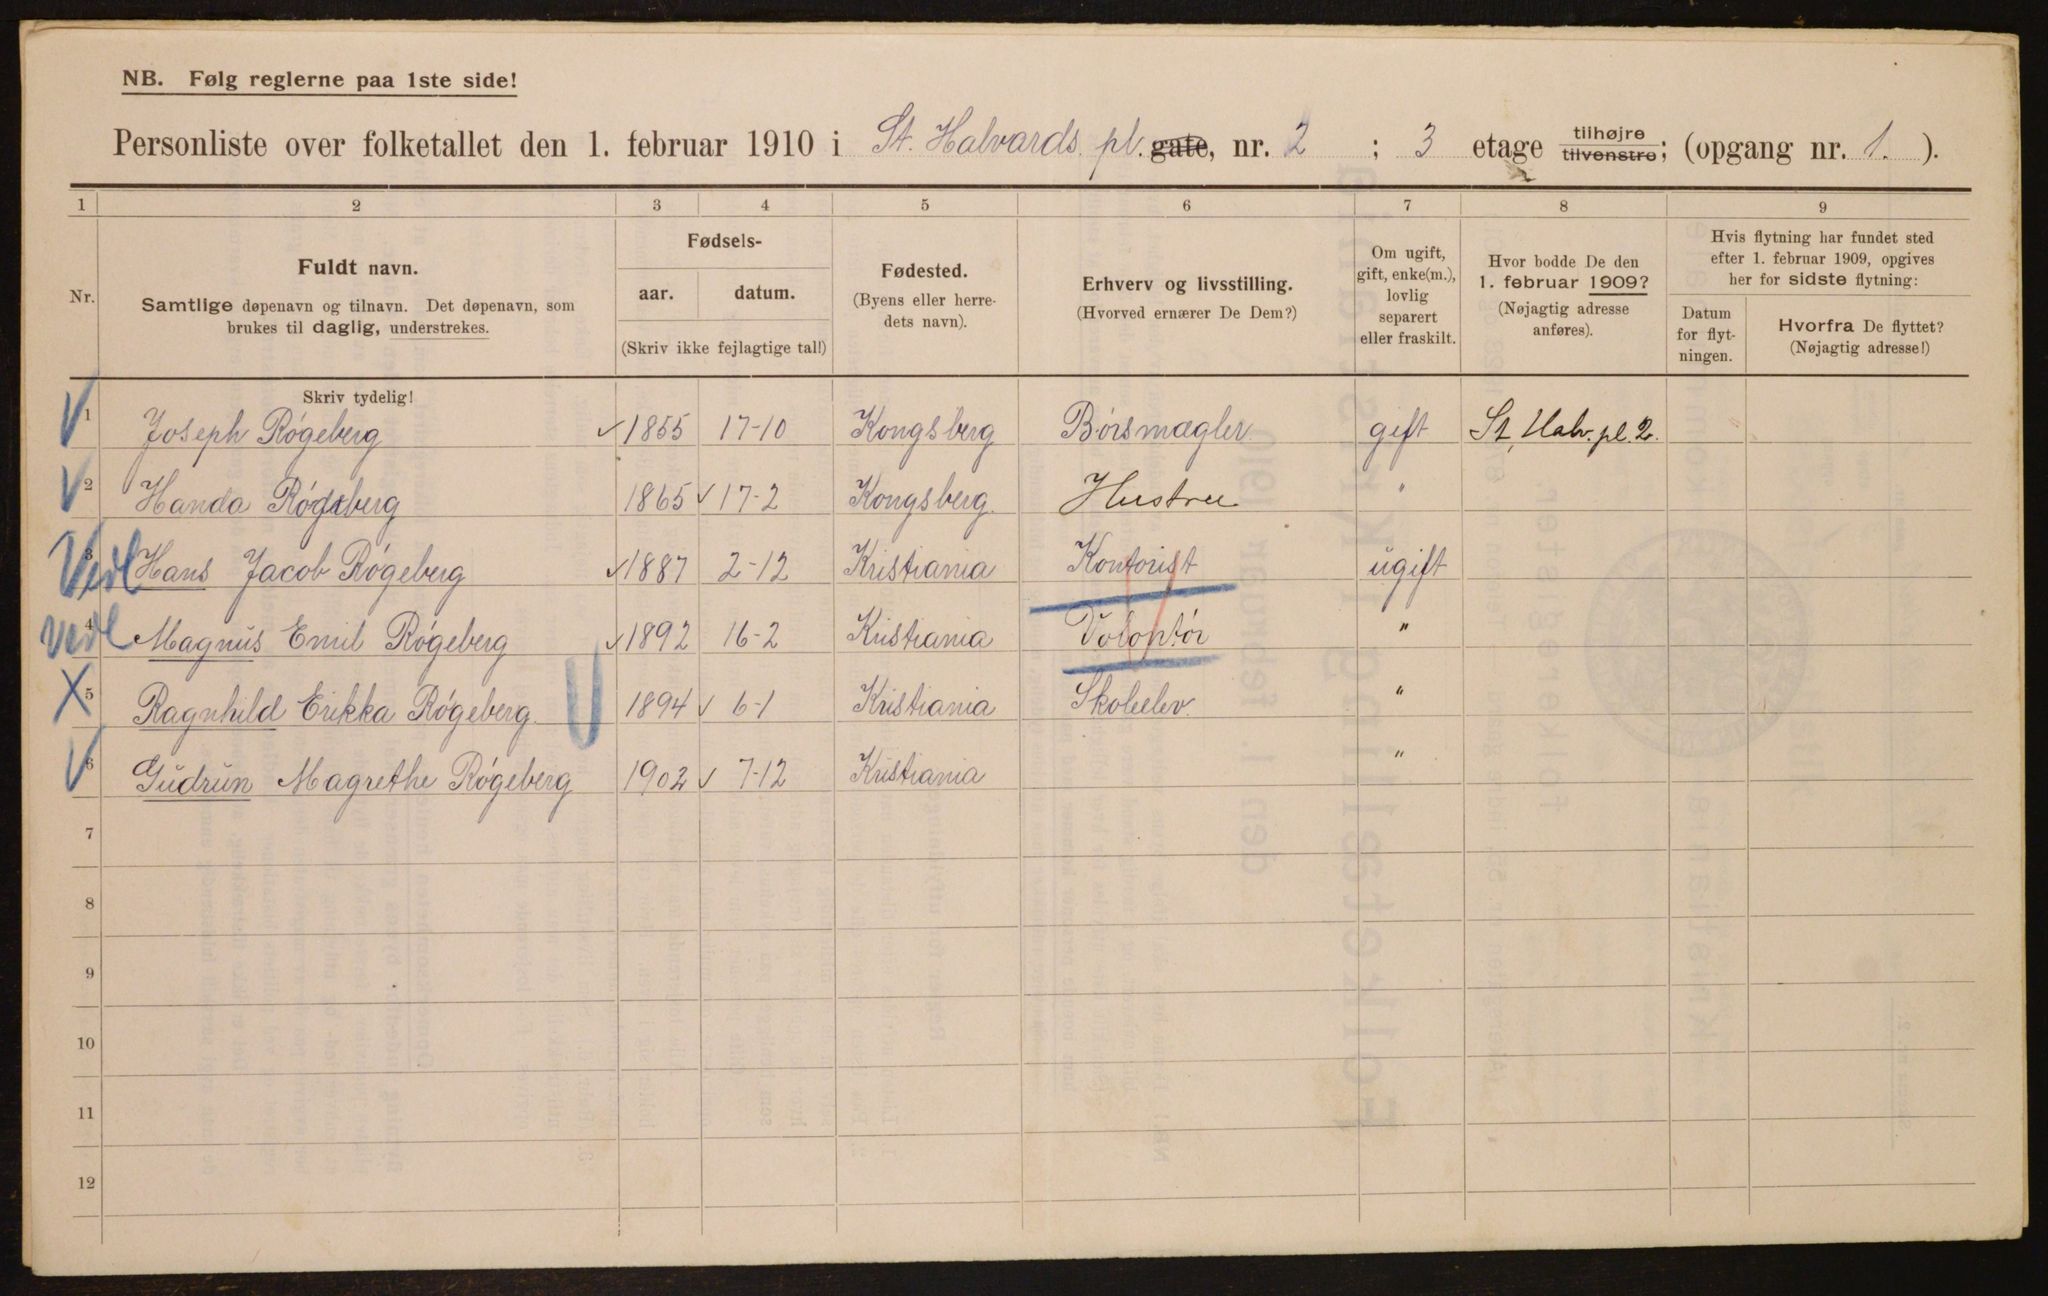 NB. Følg reglerne paa 1ste side!
Personliste over folketallet den 1. februar 1910 i St. Halvards pl. gate, nr. 2 ; 3 etage tilhøjre tilvenstre; (opgang nr. 1. ).
1 2 3 4 5 6 7 8 9
Nr.
Fuldt navn.
Samtlige døpenavn og tilnavn. Det døpenavn, som
brukes til daglig, understrekes.
Fødsels-
aar. datum.
(Skriv ikke fejlagtige tal!)
Fødested.
(Byens eller herre-
dets navn).
Erhverv og livsstilling.
(Hvorved ernærer De Dem?)
Om ugift,
gift, enke(m.),
lovlig
separert
eller fraskilt.
Hvor bodde De den
1. februar 1909?
(Nøjagtig adresse
anføres).
Hvis flytning har fundet sted
efter 1. februar 1909, opgives
her for sidste flytning:
Datum
for flyt-
ningen.
Hvorfra De flyttet?
(Nøjagtig adresse!)
Skriv tydelig!
1 Joseph Røgeberg 1855 17-10 Kongsberg Børsmægler gift St. Halv. pl. 2.
2 Handa Røgeberg 1865 17-2 Kongsberg. Hustru "
3 Hans Jacob Røgeberg 1887 2-12 Kristiania Kontorist ugift
4 Magnus Emil Røgeberg 1892 16-2 Kristiania Volontør "
5 Ragnhild Erikka Røgeberg. 1894 6-1 Kristiania Skoleelev. "
6 Gudrun Magrethe Røgeberg 1902 7-12 Kristiania "
7
8
9
10
11
12